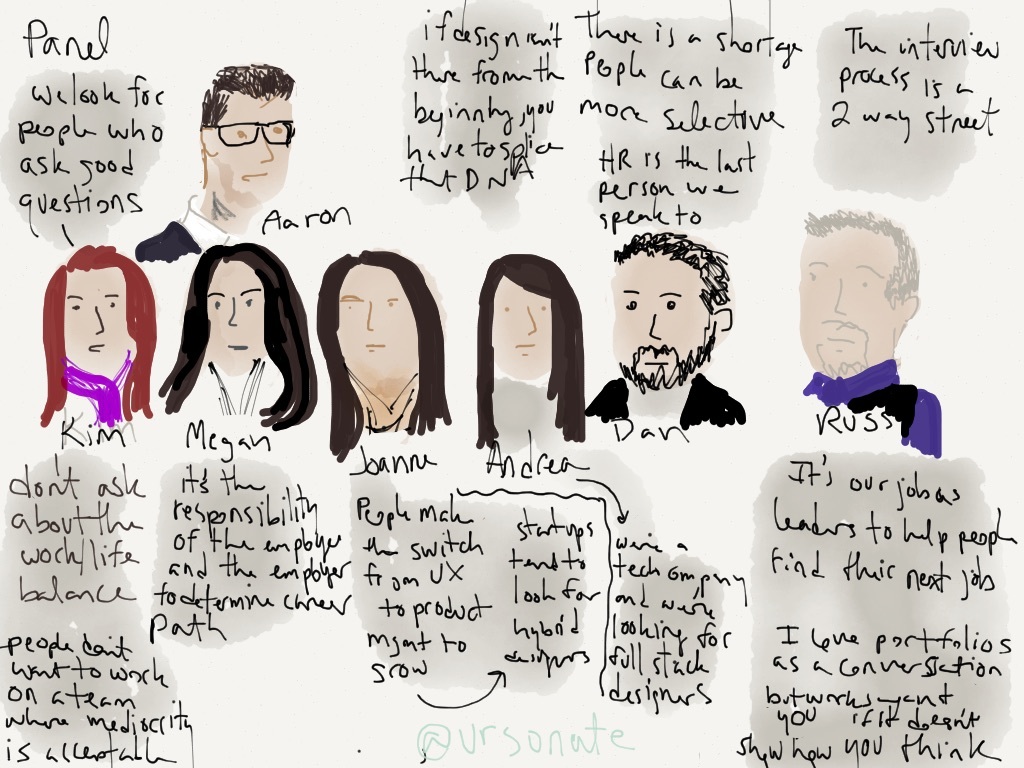 Panel
we look for
people who
ask good
questions
Aaron
if design isn't
there from the
beginning, you
have to splice
that DNA
There is a shortage
People can be
more selective
HR is the last
person we
speak to
The interview
process is a
2 way street
Kim
Megan
Joanne
Andrea
Dan
Russ
don't ask
about the
work/life
balance
people don't
want to work
on a team
where mediocrity
is acceptable
it's the
responsibility
of the employer
and the employer
to determine career
path
People make
the switch
from UX
to product
mgmt to
grow
startups
tend to
look for
hybrid
designers
we're a
tech company
and we're
looking for
full stack
designers
It's our job as
leaders to help people
find their next job
I love portfolios
as a conversation
but won't
you if it doesn't
show how you think
@ursonate